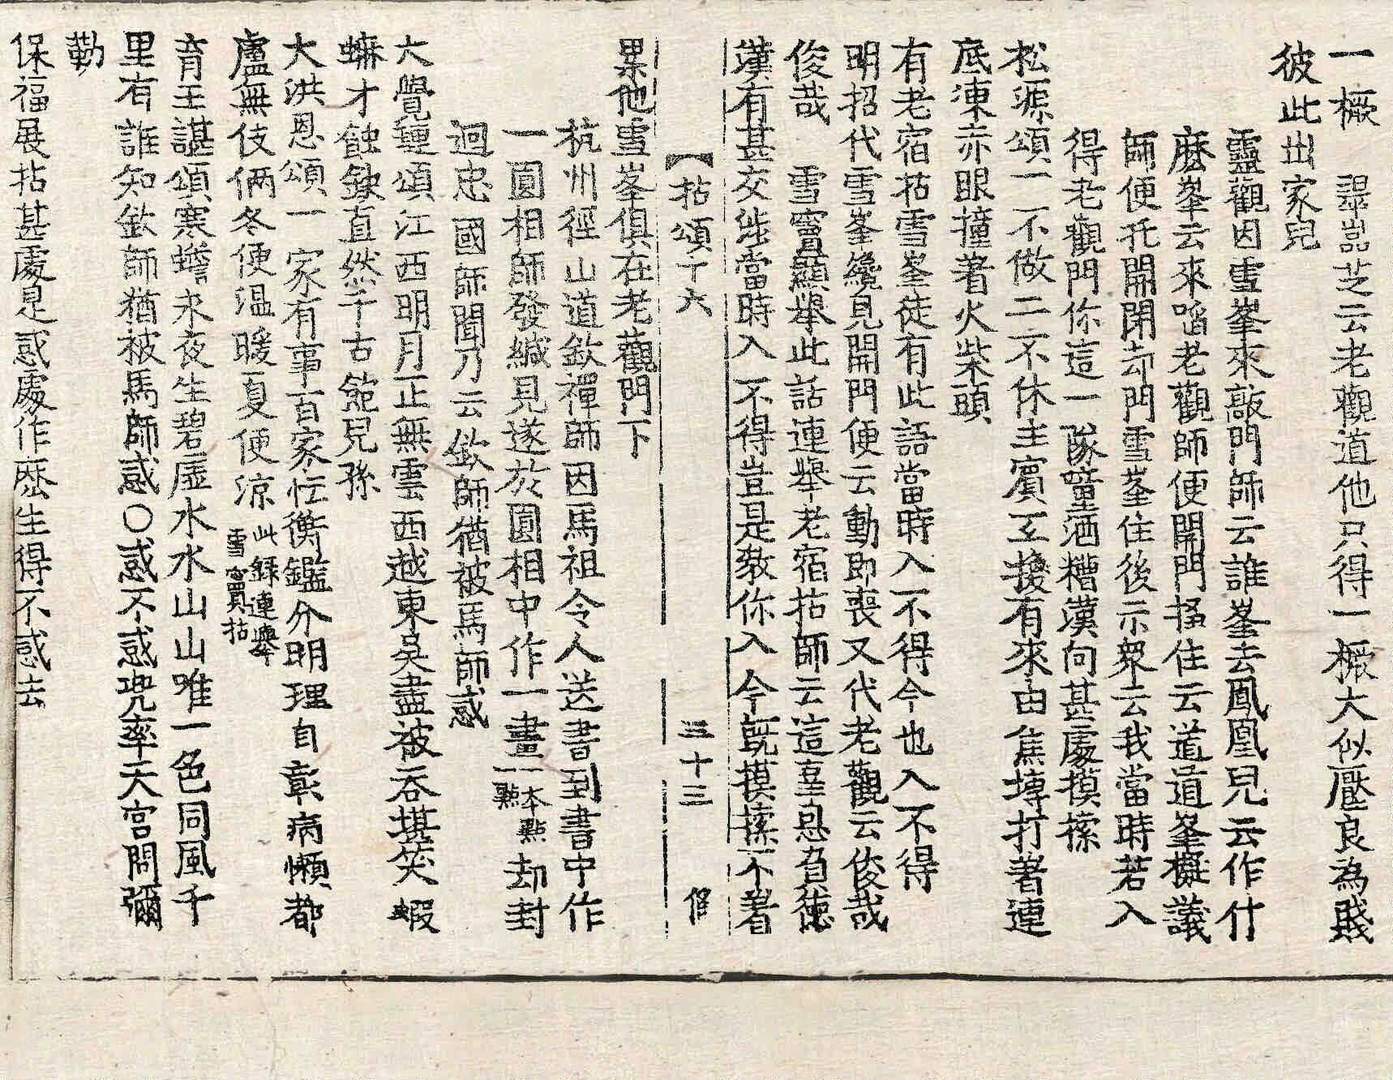 一橛　翠嵓芝云老觀道他只得一橛大似壓良為賤
彼此出家兒
靈觀因雪峯來敲門師云誰峯云鳳凰兒云作什
麽峯云來啗老觀師便開門搊住云道道峯擬議
師便托開閉却門雪峯住後示衆云我當時若入
得老觀門你這一隊噇酒糟漢向甚處摸𢱢
松源頌一不做二不休主賓互換有來由焦塼打著連
底凍赤眼撞著火柴頭
有老宿拈雪峯徒有此語當時入不得今也入不得
明招代雪峯纔見開門便云動即喪又代老觀云俊哉
俊哉　雪竇顯舉此話連舉老宿拈師云這辜恩負德
漢有甚交涉當時入不得豈是教你入今既摸𢱢不着
【拈頌十六　三十三　修
累他雪峯俱在老觀門下
杭州徑山道欽禪師因馬祖令人送書到書中作
一圓相師發緘見遂於圓相中作一畫一本點一點却封
迴忠國師聞乃云欽師猶被馬師惑
大覺璉頌江西明月正無雲西越東吳盡被吞堪笑蝦
蟆才蝕缺直然千古饒兒孫
大洪恩頌一家有事百家忙衡鑑分明理自彰病懶都
盧無伎倆冬便溫暖夏便涼此録連舉雪竇拈
育王諶頌寒蟾未夜生碧虛水水山山唯一色同風千
里有誰知欽師猶被馬師惑〇惑不惑兜率天宮問彌
勒
保福展拈甚處是惑處作麽生得不惑去